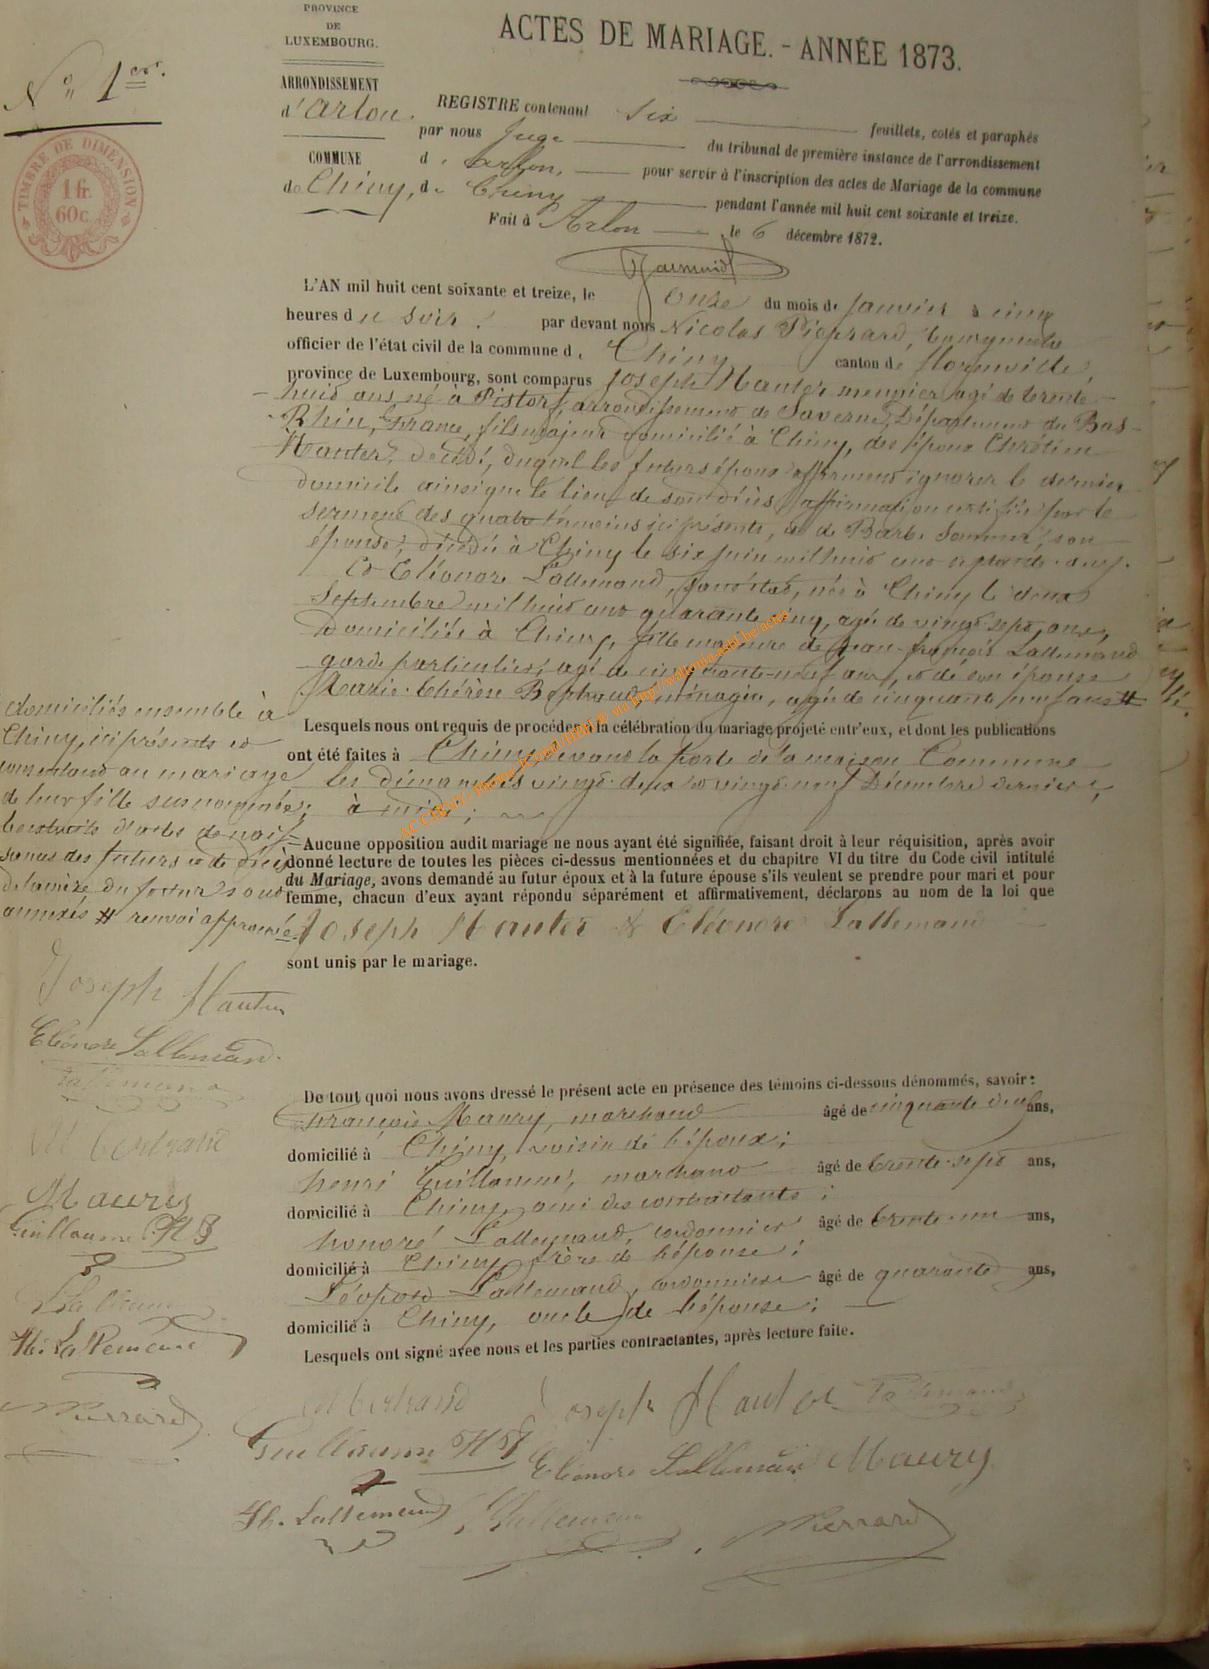 PROVINCE
DE
LUXEMBOURG.
ARRONDISSEMENT
d'Arlon.
COMMUNE
de Chiny,
No 1er.
TIMBRE DE DIMENSION
1 fr.
60c.
ACTES DE MARIAGE. - ANNÉE 1873.
REGISTRE contenant six feuillets, cotés et paraphés
par nous Juge du tribunal de première instance de l'arrondissement
d'Arlon, pour servir à l'inscription des actes de Mariage de la commune
de Chiny pendant l'année mil huit cent soixante et treize.
Fait à Arlon le 6 décembre 1872.
L'AN mil huit cent soixante et treize, le onze du mois de janvier à cinq
heures du soir. par devant nous Nicolas Pierrard, bourgmestre
officier de l'état civil de la commune de Chiny canton de florenville
province de Luxembourg, sont comparus Joseph Hanter meunier agé de trente-
huit ans, né à Pistorf, arrondissement de Saverne, Département du Bas-
Rhin, France, fils majeur domicilié à Chiny, des époux Chrétien
Hanter, décédé, duquel les futurs époux affirment ignorer le dernier
domicile ainsi que le lieu de son décès, affirmation certifiée par le
serment des quatre témoins ici présents, et de Barbe Sommer, son
épouse, décédée à Chiny le six juin mil huit cent septante-deux.
Et Eléonore Lallemand, née à Chiny le deux
Septembre mil huit cent quarante cinq, agée de vingt sept ans,
Domiciliée à Chiny, fille majeure de Jean-françois Lallemand
garde particulier, agé de cinquante-neuf ans, et de son épouse
Marie-Thérèse ménagère, agée de cinquante neuf ans #
domiciliés ensemble à
Chiny, ici présents et
consentant au mariage
de leur fille susnommée;
les extraits d'actes de nais-
sances des futurs et de décès
de la mère du futur sont
annexés # renvoi approuvé
Lesquels nous ont requis de procéder à la célébration du mariage projeté entr'eux, et dont les publications
ont été faites à Chiny devant la Porte de la maison Commune
les dimanches vingt-deux et vingt-neuf Décembre dernier,
à midi;
Aucune opposition audit mariage ne nous ayant été signifiée, faisant droit à leur réquisition, après avoir
donné lecture de toutes les pièces ci-dessus mentionnées et du chapitre VI du titre du Code civil intitulé
du Mariage, avons demandé au futur époux et à la future épouse s'ils veulent se prendre pour mari et pour
femme, chacun d'eux ayant répondu séparément et affirmativement, déclarons au nom de la loi que
Joseph Hanter & Eléonore Lallemand
sont unis par le mariage.
Joseph Hanter
Eléonore Lallemand
Lallemand
M Bertrand
Maury
Guillaume H J
Lallemand
H. Lallemand
Pierrard
De tout quoi nous avons dressé le présent acte en présence des témoins ci-dessous dénommés, savoir:
François Maury, marchand âgé de cinquante deux ans,
domicilié à Chiny, voisin de l'époux;
henri Guillaume, marchand âgé de trente-sept ans,
domicilié à Chiny, ami des contractants;
honoré Lallemand, cordonnier âgé de trente-un ans,
domicilié à Chiny frère de l'épouse;
Léopold Lallemand, cordonnier âgé de quarante ans,
domicilié à Chiny, oncle de l'épouse;
Lesquels ont signé avec nous et les parties contractantes, après lecture faite.
M Bertrand Joseph Hanter Lallemand
Guillaume H J Eléonore Lallemand Maury
H. Lallemand L Lallemand Pierrard